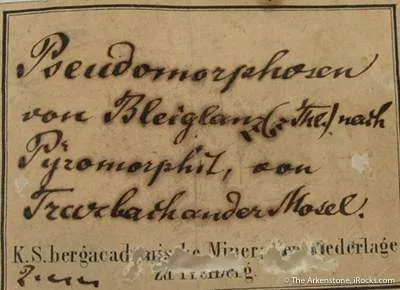 Pseudomorphosen
von Bleiglanz (z. Thl.) nach
Pyromorphit, von
Trarbach an der Mosel.
K. S. bergacad
zu Freiberg.
© The Arkenstone, iRocks.com